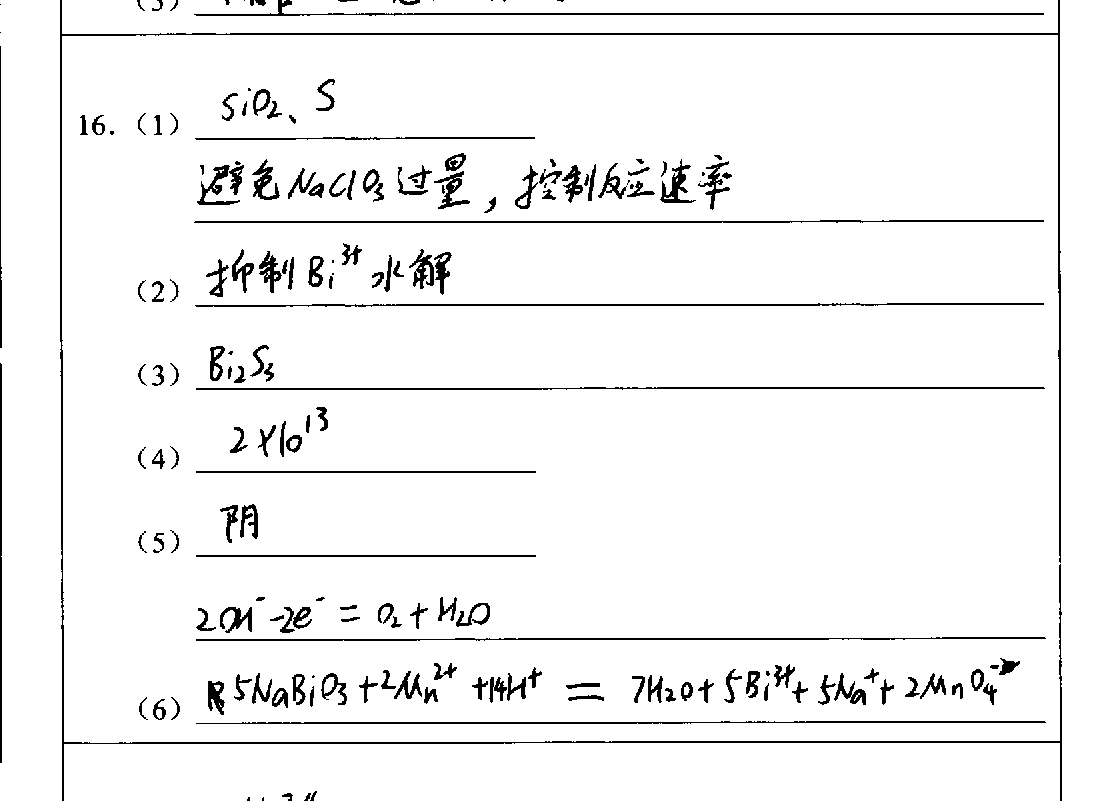 (3)
16. (1) SiO₂、S
避免NaClO₃过量，控制反应速率
(2) 抑制Bi³⁺水解
(3) Bi₂S₃
(4) 2×10¹³
(5) 阴
2OH⁻-2e⁻=O₂+H₂O
(6) 5NaBiO₃+2Mn²⁺+14H⁺=7H₂O+5Bi³⁺+5Na⁺+2MnO₄⁻